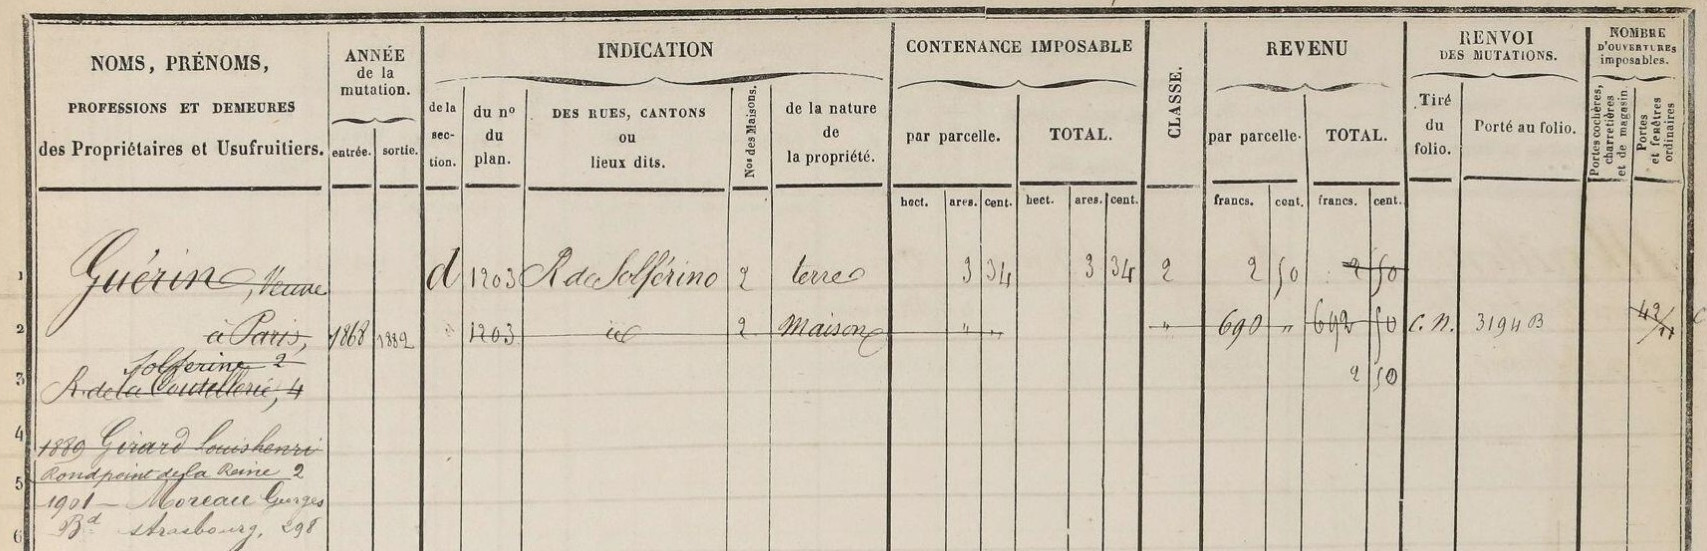 NOMS, PRÉNOMS,
PROFESSIONS ET DEMEURES
des Propriétaires et Usufruitiers.
ANNÉE
de la
mutation.
entrée. sortie.
INDICATION
de la
sec-
tion.
du nº
du
plan.
DES RUES, CANTONS
ou
lieux dits.
Nos des Maisons.
de la nature
de
la propriété.
CONTENANCE IMPOSABLE
par parcelle. TOTAL.
CLASSE.
REVENU
par parcelle. TOTAL.
RENVOI
DES MUTATIONS.
Tiré
du
folio.
Porté au folio.
NOMBRE
D'OUVERTURES
imposables.
Portes cochères,
charretières
et de magasin.
Portes
et fenêtres
ordinaires
hect. ares. cent. hect. ares. cent. francs. cent. francs. cent.
1 Guérin, Veuve d 1203 R de Solférino 2 terre 3 34 3 34 2 2 50 2 50
2 à Paris, 1868 1882 1203 id 2 Maison " " " 690 " 692 50 C. N. 3194 B 42/11
Solferine 2 2 50
3 R. de la Coutellerie, 4
4 1889 Girard Louis henri
Rond point de la Reine 2
5 1901 — Moreau Georges
Bd strasbourg, 298
6